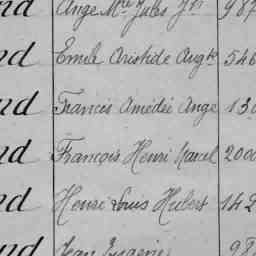 nd Ange Mie Jules Jh 987
nd Emile Aristide Augte 546
nd Francis Amédée Ange 130
nd François Henri Marcel 2000
nd Henri Louis Hubert 142
nd Jean Eugénie 98